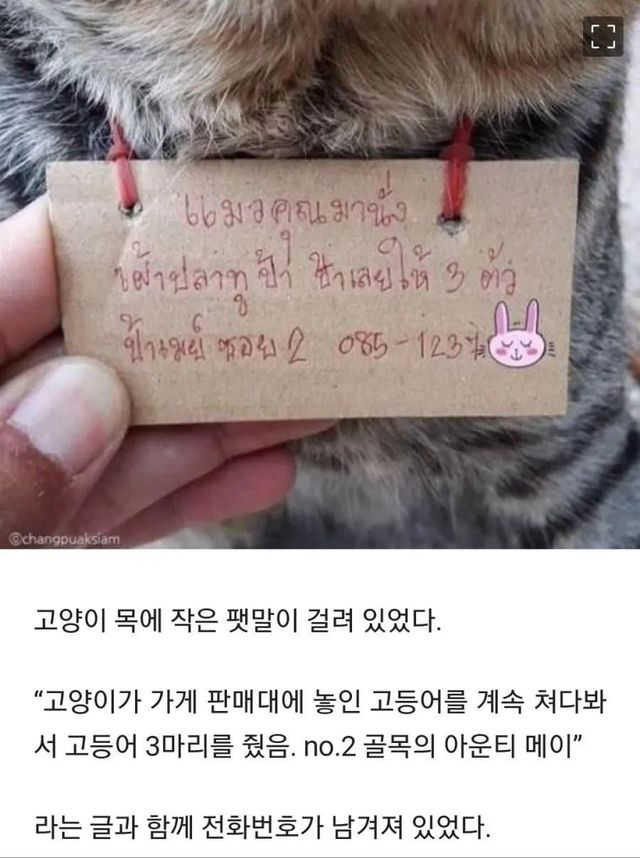 แมวคุณมานั่ง
เฝ้าปลาทู ป้าใ ช้าเลยให้ 3 ตัว
ป้าเมย์ ซอย 2 085-1237
@changpuaksiam
고양이 목에 작은 팻말이 걸려 있었다.
“고양이가 가게 판매대에 놓인 고등어를 계속 쳐다봐
서 고등어 3마리를 줬음. no.2 골목의 아운티 메이”
라는 글과 함께 전화번호가 남겨져 있었다.